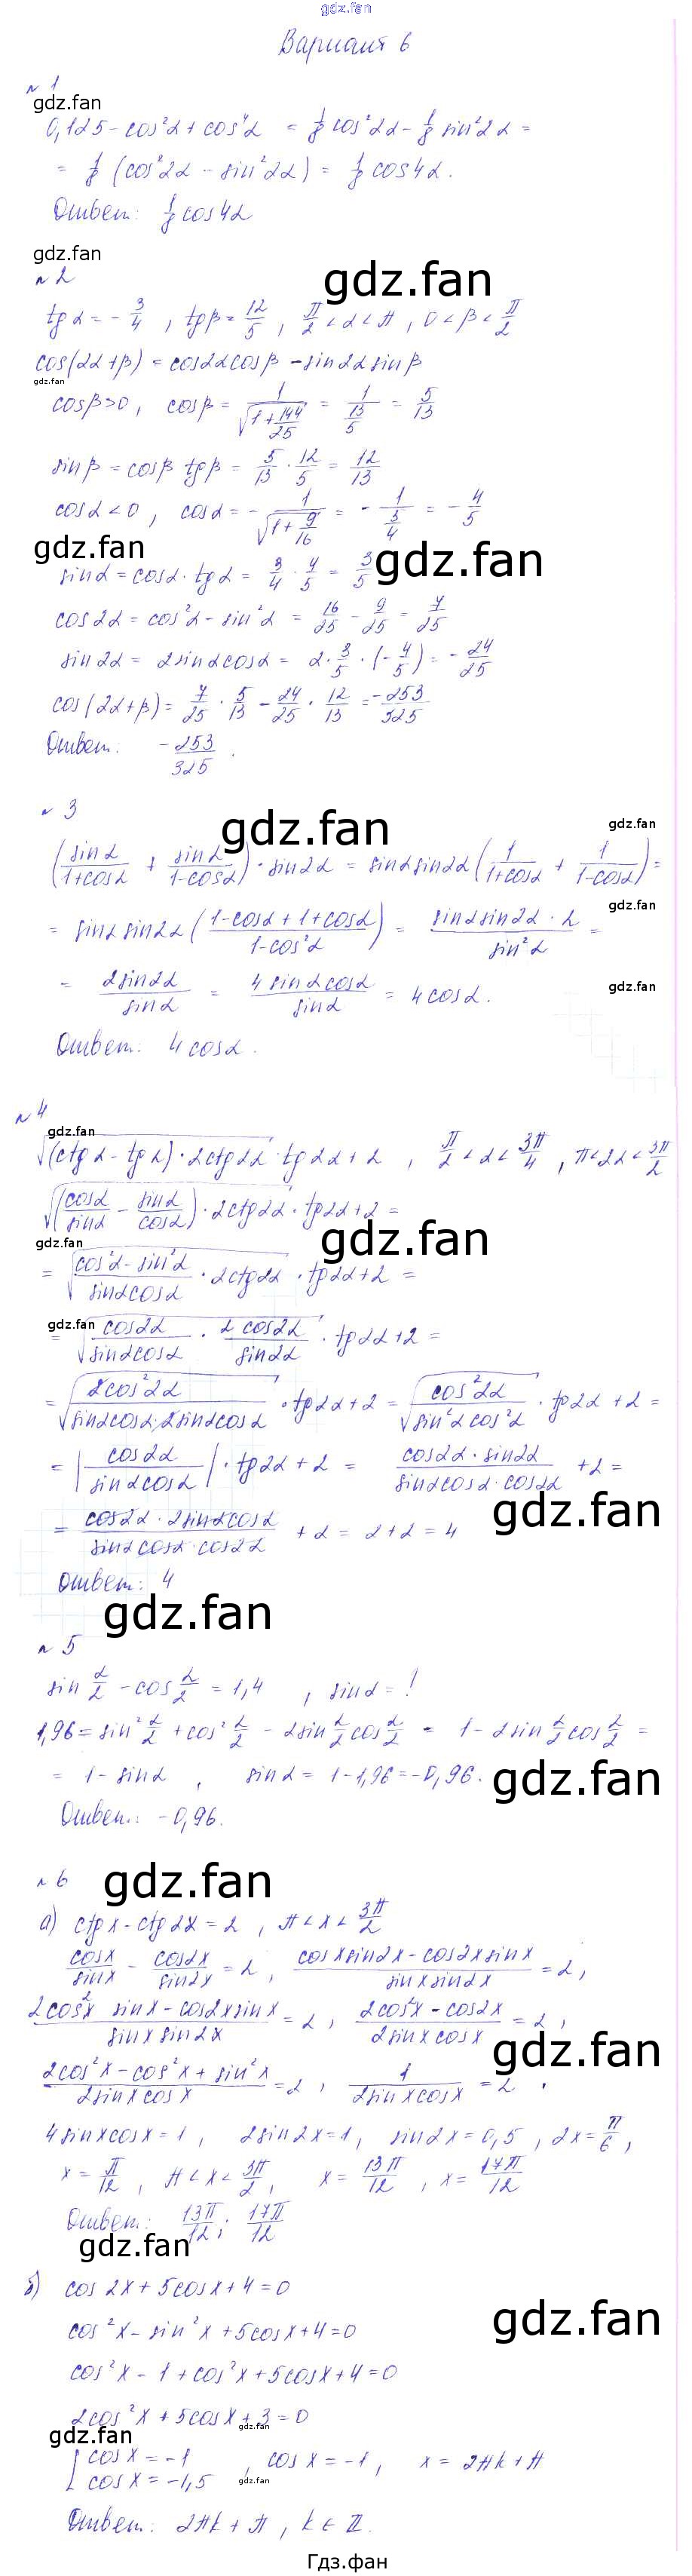 gdz.fan
Вариант 6
№ 1
gdz.fan
0,125 - cos²α + cos⁴α = 1/8 cos²2α - 1/8 sin²2α =
= 1/8 (cos²2α - sin²2α) = 1/8 cos4α.
Ответ: 1/8 cos4α
gdz.fan
№ 2
gdz.fan
tgα = -3/4 , tgβ = 12/5 , π/2 < α < π , 0 < β < π/2
cos(2α+β) = cos2αcosβ - sin2αsinβ
gdz.fan
cosβ>0, cosβ = 1/√(1+144/25) = 1/(13/5) = 5/13
sinβ = cosβ tgβ = 5/13 · 12/5 = 12/13
cosα < 0, cosα = -1/√(1+9/16) = -1/(3/4) = -4/5
gdz.fan
gdz.fan
sinα = cosα · tgα = 3/4 · 4/5 = 3/5
cos2α = cos²α - sin²α = 16/25 - 9/25 = 7/25
sin2α = 2sinαcosα = 2·3/5 · (-4/5) = -24/25
cos(2α+β) = 7/25 · 5/13 - 24/25 · 12/13 = -253/325
Ответ: -253/325.
№ 3
gdz.fan
gdz.fan
(sinα/(1+cosα) + sinα/(1-cosα)) · sin2α = sinαsin2α(1/(1+cosα) + 1/(1-cosα)) =
gdz.fan
= sinαsin2α((1-cosα+1+cosα)/(1-cos²α)) = (sinαsin2α · 2)/sin²α =
gdz.fan
= 2sin2α/sinα = 4sinαcosα/sinα = 4cosα.
Ответ: 4cosα.
№ 4
gdz.fan
√((ctgα - tgα)·2ctg2α) · tg2α + 2 , π/2 < α < 3π/4 , π<2α<3π/2
√((cosα/sinα - sinα/cosα)·2ctg2α) · tg2α+2 =
gdz.fan
gdz.fan
= √((cos²α - sin²α)/(sinαcosα) · 2ctg2α) · tg2α+2 =
gdz.fan
= √(cos2α/(sinαcosα) · 2cos2α/sin2α) · tg2α+2 =
= √(2cos²2α/(sinαcosα·2sinαcosα)) · tg2α+2 = √(cos²2α/(sin²αcos²α)) · tg2α+2 =
= |cos2α/(sinαcosα)| · tg2α+2 = (cos2α · sin2α)/(sinαcosα·cos2α) + 2 =
gdz.fan
= (cos2α · 2sinαcosα)/(sinαcosα·cos2α) + 2 = 2+2 = 4
Ответ: 4
gdz.fan
№ 5
sin α/2 - cos α/2 = 1,4 , sinα = !
1,96 = sin² α/2 + cos² α/2 - 2sin α/2 cos α/2 = 1 - 2sin α/2 cos α/2 =
= 1 - sinα , sinα = 1-1,96 = -0,96.
gdz.fan
Ответ: -0,96.
№ 6
gdz.fan
а) ctgx - ctg2x = 2 , π < x < 3π/2
cosx/sinx - cos2x/sin2x = 2 , (cosxsin2x - cos2xsinx)/(sinxsin2x) = 2 ,
(2cos²x sinx - cos2xsinx)/(sinxsin2x) = 2 , (2cos²x - cos2x)/(2sinxcosx) = 2 ,
gdz.fan
(2cos²x - cos²x + sin²x)/(2sinxcosx) = 2 , 1/(2sinxcosx) = 2 ,
4sinxcosx = 1 , 2sin2x = 1 , sin2x = 0,5 , 2x = π/6 ,
x = π/12 , π < x < 3π/2 , x = 13π/12 , x = 17π/12
Ответ: 13π/12 ; 17π/12
gdz.fan
б) cos2x + 5cosx + 4 = 0
gdz.fan
cos²x - sin²x + 5cosx + 4 = 0
cos²x - 1 + cos²x + 5cosx + 4 = 0
2cos²x + 5cosx + 3 = 0
gdz.fan
gdz.fan
[cosx = -1
cosx = -1,5 , cosx = -1 , x = 2πk + π
gdz.fan
Ответ: 2πk + π , k ∈ Z.
Гдз.фан